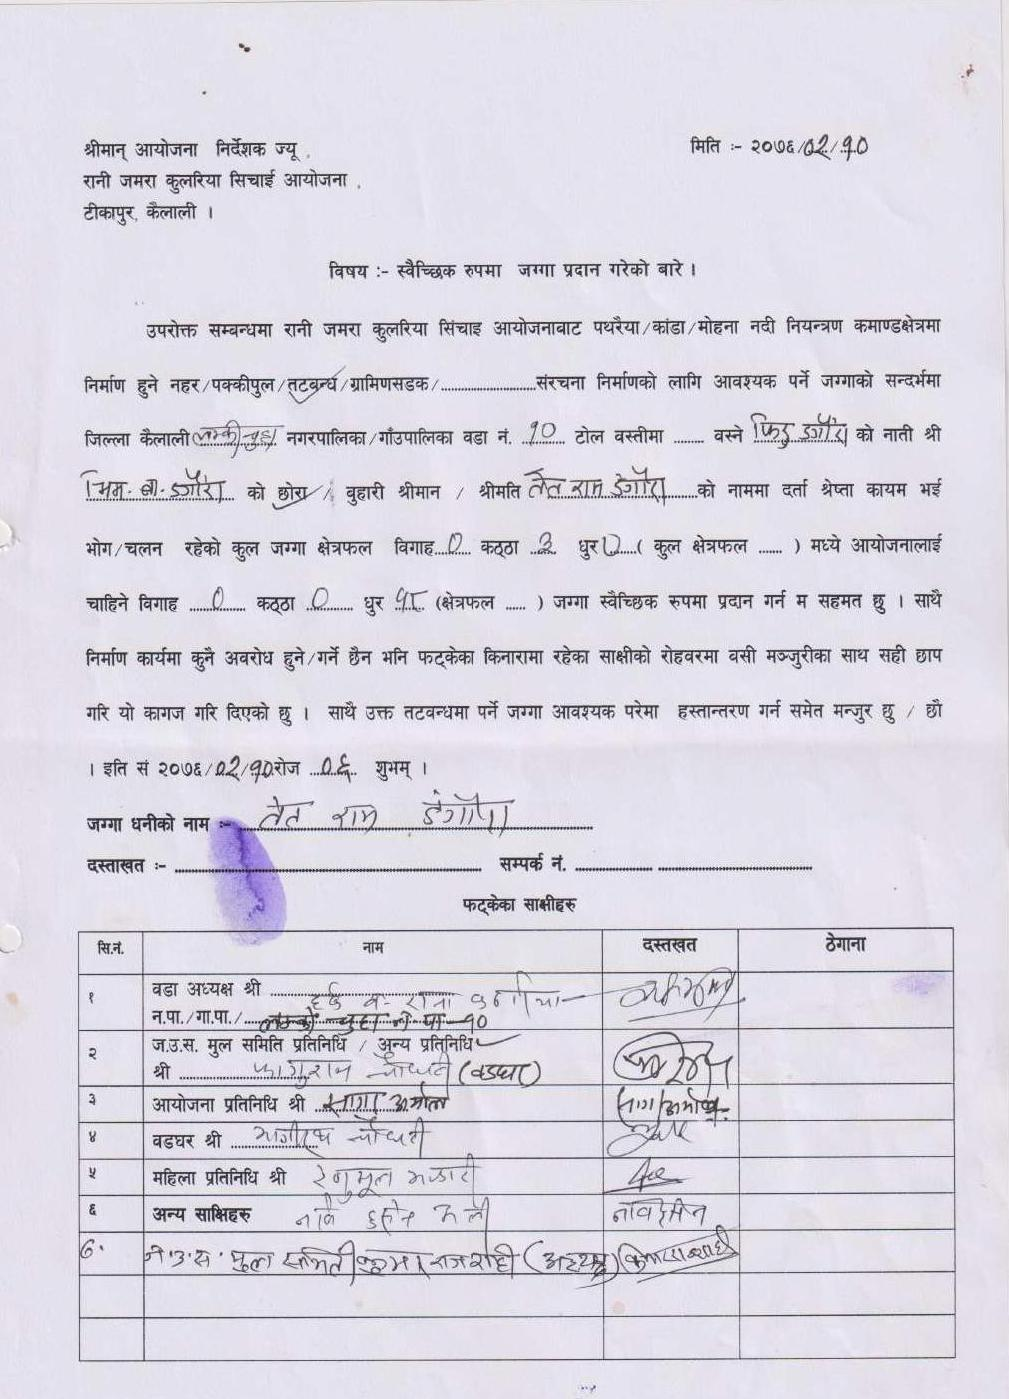 श्रीमान् आयोजना निर्देशक ज्यू , मिति :- २०७६/०२/१०
रानी जमरा कुलरिया सिचाई आयोजना ,
टीकापुर, कैलाली ।
विषय :- स्वैच्छिक रुपमा जग्गा प्रदान गरेको बारे ।
उपरोक्त सम्बन्धमा रानी जमरा कुलरिया सिंचाइ आयोजनाबाट पथरैया/कांडा/मोहना नदी नियन्त्रण कमाण्डक्षेत्रमा
निर्माण हुने नहर/पक्कीपुल/तटबन्ध/ग्रामिणसडक/........................संरचना निर्माणको लागि आवश्यक पर्ने जग्गाको सन्दर्भमा
जिल्ला कैलाली लम्की चुहा नगरपालिका/गाँउपालिका वडा नं. १० टोल वस्तीमा ........ वस्ने डगौरा को नाती श्री
डगौरा को छोरा / बुहारी श्रीमान / श्रीमति तेत राम डंगौरा को नाममा दर्ता श्रेष्ता कायम भई
भोग/चलन रहेको कुल जग्गा क्षेत्रफल विगाह ० कठ्ठा ३ धुर ० ( कुल क्षेत्रफल ...... ) मध्ये आयोजनालाई
चाहिने विगाह ० कठ्ठा ० धुर १८ (क्षेत्रफल ..... ) जग्गा स्वैच्छिक रुपमा प्रदान गर्न म सहमत छु । साथै
निर्माण कार्यमा कुनै अवरोध हुने/गर्ने छैन भनि फट्केका किनारामा रहेका साक्षीको रोहवरमा वसी मञ्जुरीका साथ सही छाप
गरि यो कागज गरि दिएको छु । साथै उक्त तटवन्धमा पर्ने जग्गा आवश्यक परेमा हस्तान्तरण गर्न समेत मन्जुर छु / छौ
। इति सं २०७६/०२/१० रोज ०६ शुभम् ।
जग्गा धनीको नाम :- तेत राम डंगौरा
दस्ताखत :- ........................ सम्पर्क नं. ........................
फट्केका साक्षीहरु
सि.नं. नाम दस्तखत ठेगाना
१ वडा अध्यक्ष श्री
न.पा./गा.पा./ लम्की चुहा न पा १०
२ ज.उ.स. मुल समिति प्रतिनिधि / अन्य प्रतिनिधि
श्री फागुराम चौधरी (वडघर)
३ आयोजना प्रतिनिधि श्री
४ वडघर श्री चौधरी
५ महिला प्रतिनिधि श्री
६ अन्य साक्षिहरु
७. ज.उ.स. मुल समिति (अध्यक्ष)